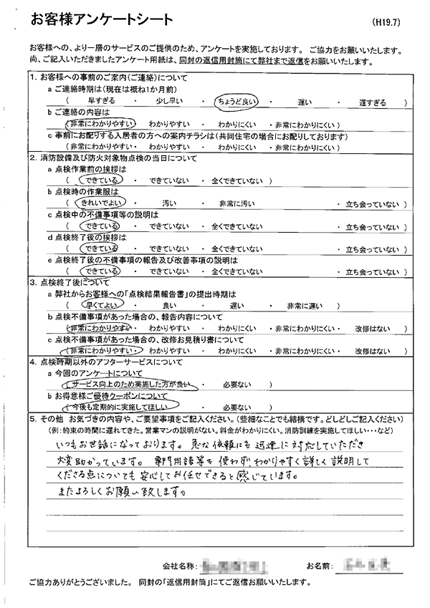 お客様アンケートシート
（H19.7）
お客様への、より一層のサービスのご提供のため、アンケートを実施しております。 ご協力をお願いいたします。
尚、ご記入いただきましたアンケート用紙は、同封の返信用封筒にて弊社まで返信をお願いいたします。
1. お客様への事前のご案内（ご連絡）について
a ご連絡時期は（現在は概ね1か月前）
（ 早すぎる ・ 少し早い ・ ちょうど良い ・ 遅い ・ 遅すぎる ）
b ご連絡の内容は
（非常にわかりやすい ・ わかりやすい ・ わかりにくい ・ 非常にわかりにくい）
c 事前にお配りする入居者の方への案内チラシは（共同住宅の場合にお配りしております）
（非常にわかりやすい ・ わかりやすい ・ わかりにくい ・ 非常にわかりにくい）
2. 消防設備及び防火対象物点検の当日について
a 点検作業前の挨拶は
（ できている ・ できていない ・ 全くできていない ）
b 点検時の作業服は
（ きれいでよい ・ 汚い ・ 非常に汚い ・ 立ち会っていない ）
c 点検中の不備事項等の説明は
（ できている ・ できていない ・ 全くできていない ・ 立ち会っていない ）
d 点検終了後の挨拶は
（ できている ・ できていない ・ 全くできていない ・ 立ち会っていない ）
e 点検終了後の不備事項の報告及び改善事項の説明は
（ できている ・ できていない ・ 全くできていない ・ 立ち会っていない ）
3. 点検終了後について
a 弊社からお客様への「点検結果報告書」の提出時期は
（ 早くてよい ・ 良い ・ 遅い ・ 非常に遅い ）
b 点検不備事項があった場合の、報告内容について
（ 非常にわかりやすい ・ わかりやすい ・ わかりにくい ・ 非常にわかりにくい ・ 改修はない ）
c 点検不備事項があった場合の、改修お見積り書について
（ 非常にわかりやすい ・ わかりやすい ・ わかりにくい ・ 非常にわかりにくい ・ 改修はない ）
4. 点検時期以外のアフターサービスについて
a 今回のアンケートについて
（ サービス向上のため実施した方が良い ・ 必要ない ）
b お得意様ご優待クーポンについて
（ 今後も定期的に実施してほしい ・ 必要ない ）
5. その他 お気づきの内容や、ご要望事項をご記入ください。（些細なことでも結構です。どしどしご記入ください）
（例：約束の時間に遅れてきた。営業マンの説明がない。料金がわかりにくい。消防訓練を実施してほしい・・・など）
いつもお世話になっております。急な依頼にも迅速に対応していただき
大変助かっています。専門用語等を使わず、わかりやすく詳しく説明して
くださる点についても安心してお任せできると感じています。
またよろしくお願い致します。
会社名称：
お名前：
ご協力ありがとうございました。 同封の「返信用封筒」にてご返信お願いいたします。